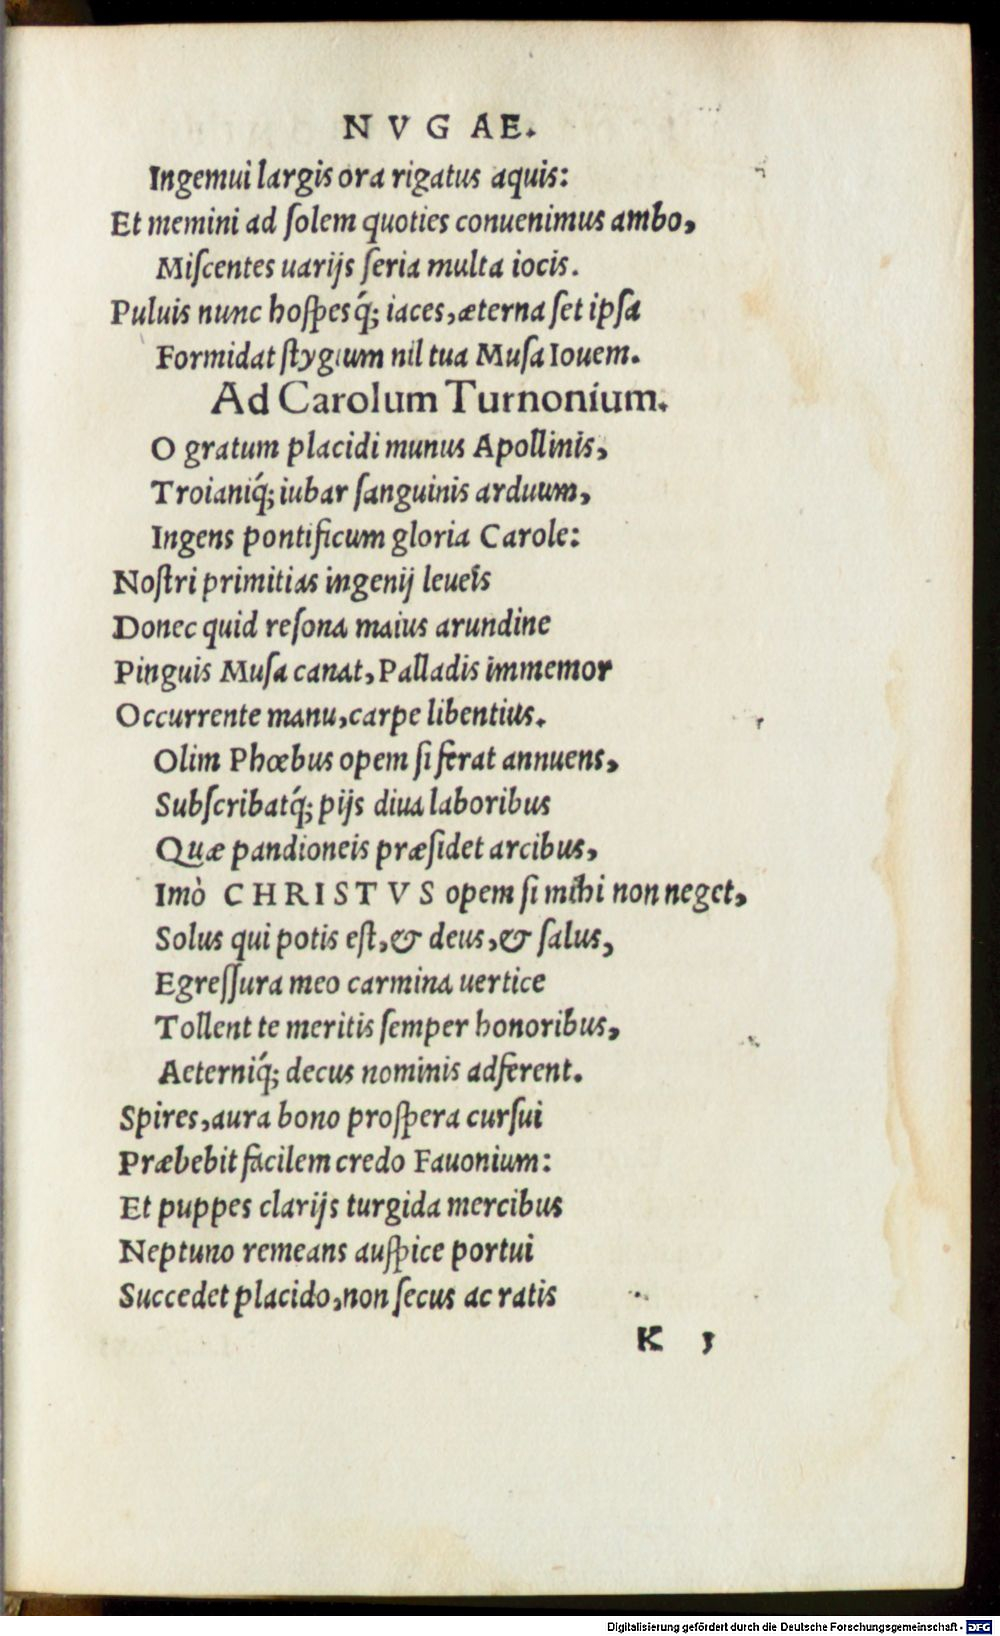 NVGAE.
Ingemui largis ora rigatus aquis:
Et memini ad ſolem quoties conuenimus ambo,
Miſcentes uarijs ſeria multa iocis.
Puluis nunc hoſpesq́; iaces, æterna ſet ipſa
Formidat ſtygium nil tua Muſa Iouem.
Ad Carolum Turnonium.
O gratum placidi munus Apollinis,
Troianiq́; iubar ſanguinis arduum,
Ingens pontificum gloria Carole:
Noſtri primitias ingenij leueis
Donec quid reſona maius arundine
Pinguis Muſa canat, Palladis immemor
Occurrente manu, carpe libentius.
Olim Phœbus opem ſi ferat annuens,
Subſcribatq́; pijs diua laboribus
Quæ pandioneis præſidet arcibus,
Imò CHRISTVS opem ſi mihi non neget,
Solus qui potis eſt, & deus, & ſalus,
Egreſſura meo carmina uertice
Tollent te meritis ſemper honoribus,
Aeterniq́; decus nominis adferent.
Spires, aura bono proſpera curſui
Præbebit facilem credo Fauonium:
Et puppes clarijs turgida mercibus
Neptuno remeans auſpice portui
Succedet placido, non ſecus ac ratis
K 3
Digitalisierung gefördert durch die Deutsche Forschungsgemeinschaft - DFG